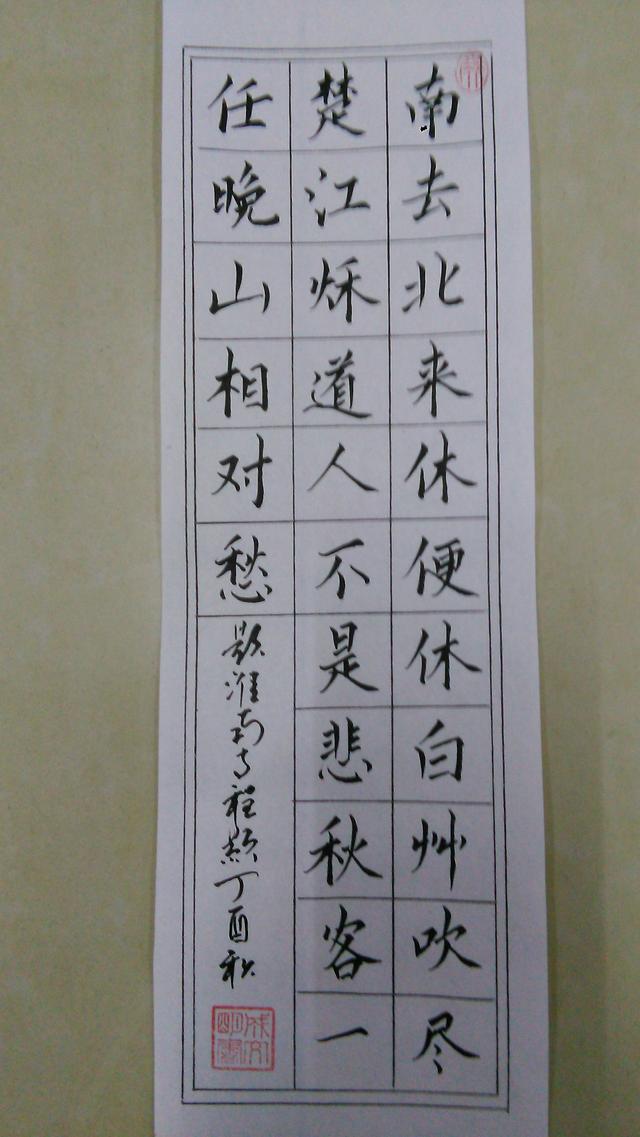 南去北来休便休白艸吹尽
楚江秌道人不是悲秋客一
任晚山相对愁
题淮南寺程颢丁酉秋